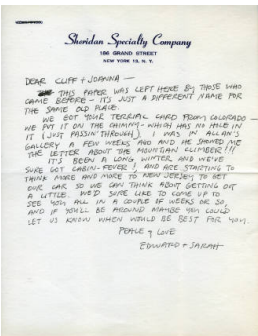 Sheridan Specialty Company
186 GRAND STREET
NEW YORK 13, N. Y.
DEAR CLIFF + JOANNA -
THIS PAPER WAS LEFT HERE BY THOSE WHO
CAME BEFORE - IT'S JUST A DIFFERENT NAME FOR
THE SAME OLD PLACE.
WE GOT YOUR TERRIAL CARD FROM COLORADO -
WE PUT IT ON THE CHIMNY - WHICH HAS NO HOLE IN
IT (JUST PASSIN' THROUGH). I WAS IN ALLAN'S
GALLERY A FEW WEEKS AGO AND HE SHOWED ME
THE LETTER ABOUT THE MOUNTIAN CLIMBER!!!
IT'S BEEN A LONG WINTER AND WE'VE
SURE GOT CABIN-FEVER!, AND ARE STARTING TO
THINK MORE AND MORE TO NEW JERSEY TO GET
OUR CAR SO WE CAN THINK ABOUT GETTING OUT
A LITTLE. WE'D SURE LIKE TO COME UP TO
SEE YOU ALL IN A COUPLE OF WEEKS OR SO,
AND IF YOU'LL BE AROUND MAYBE YOU COULD
LET US KNOW WHEN WOULD BE BEST FOR YOU.
PEACE + LOVE
EDWARD + SARAH